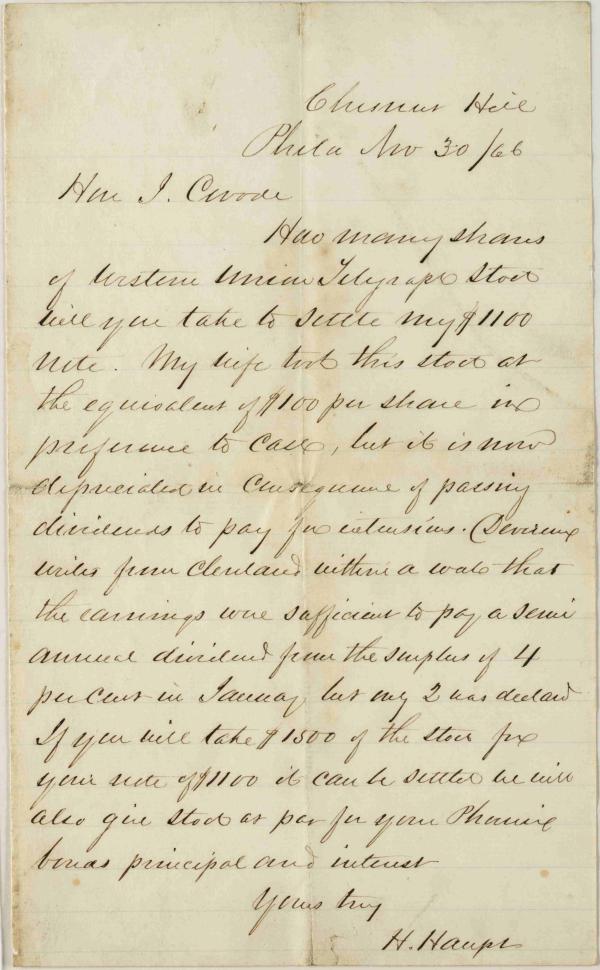 Chesnut Hill
Phila Nov 30 /66
Hon J. Covode
How many shares
of Western Union Telegraph Stock
will you take to settle my $1100
note. My wife took this stock at
the equivalent of $100 per share in
preference to cash, but it is now
depreciated in consequence of passing
dividends to pay for extensions. Devereux
writes from Cleveland within a week that
the earnings were sufficient to pay a semi
annual dividend from the surplus of 4
per cent in January but only 2 was declared
If you will take $1500 of the stock for
your note of $1100 it can be settled we will
also give stock at par for your Phoenix
bonds principal and interest
Yours truly
H. Haupt